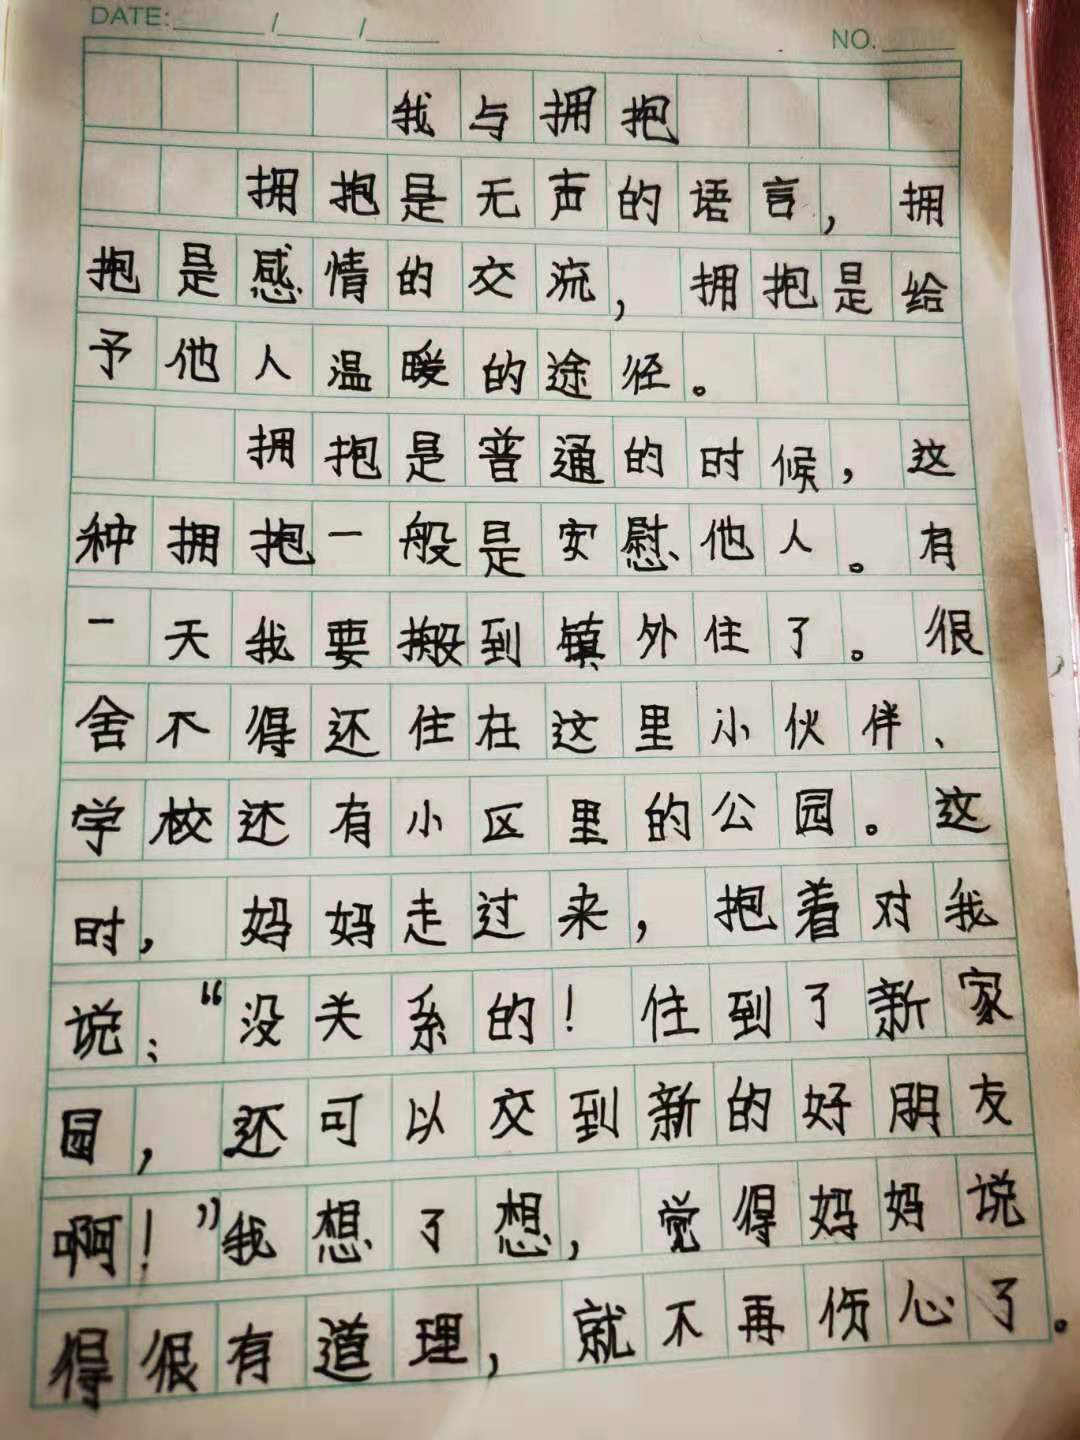 DATE: / /
NO.
我与拥抱
拥抱是无声的语言，拥
抱是感情的交流，拥抱是给
予他人温暖的途径。
拥抱是普通的时候，这
种拥抱一般是安慰他人。有
一天我要搬到镇外住了。很
舍不得还住在这里小伙伴、
学校还有小区里的公园。这
时，妈妈走过来，抱着对我
说：“没关系的！住到了新家
园，还可以交到新的好朋友
啊！”我想了想，觉得妈妈说
得很有道理，就不再伤心了。